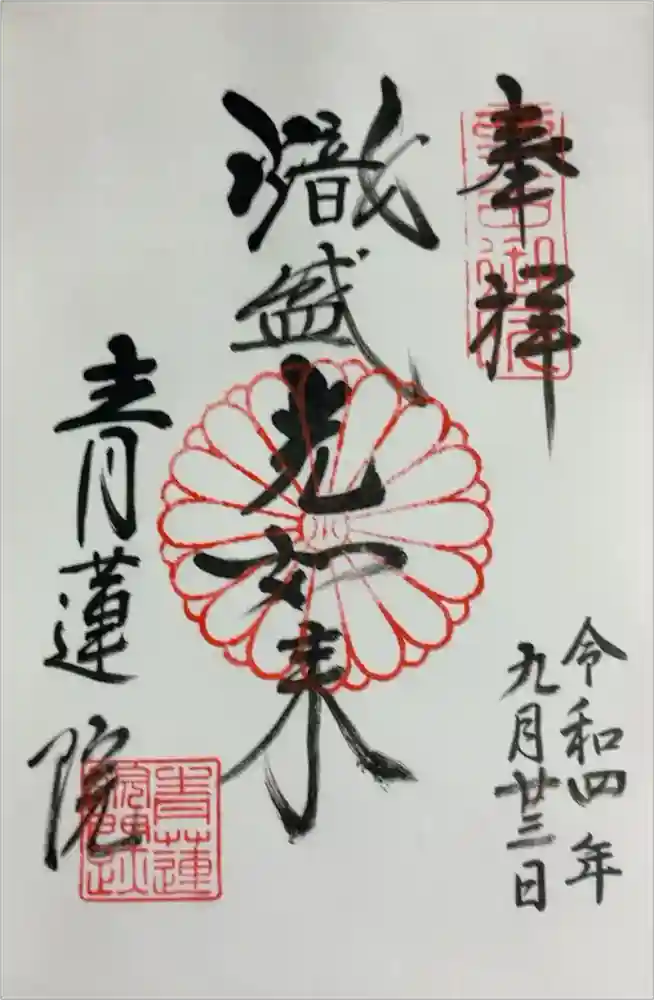 奉拝
熾盛光如来
青蓮院
令和四年
九月廿三日
青蓮院門跡